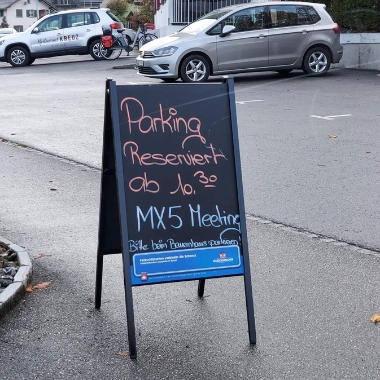 KREUZ
Parking
Reserviert
ab 10.30
MX5 Meeting
Bitte beim Bauernhaus parkieren